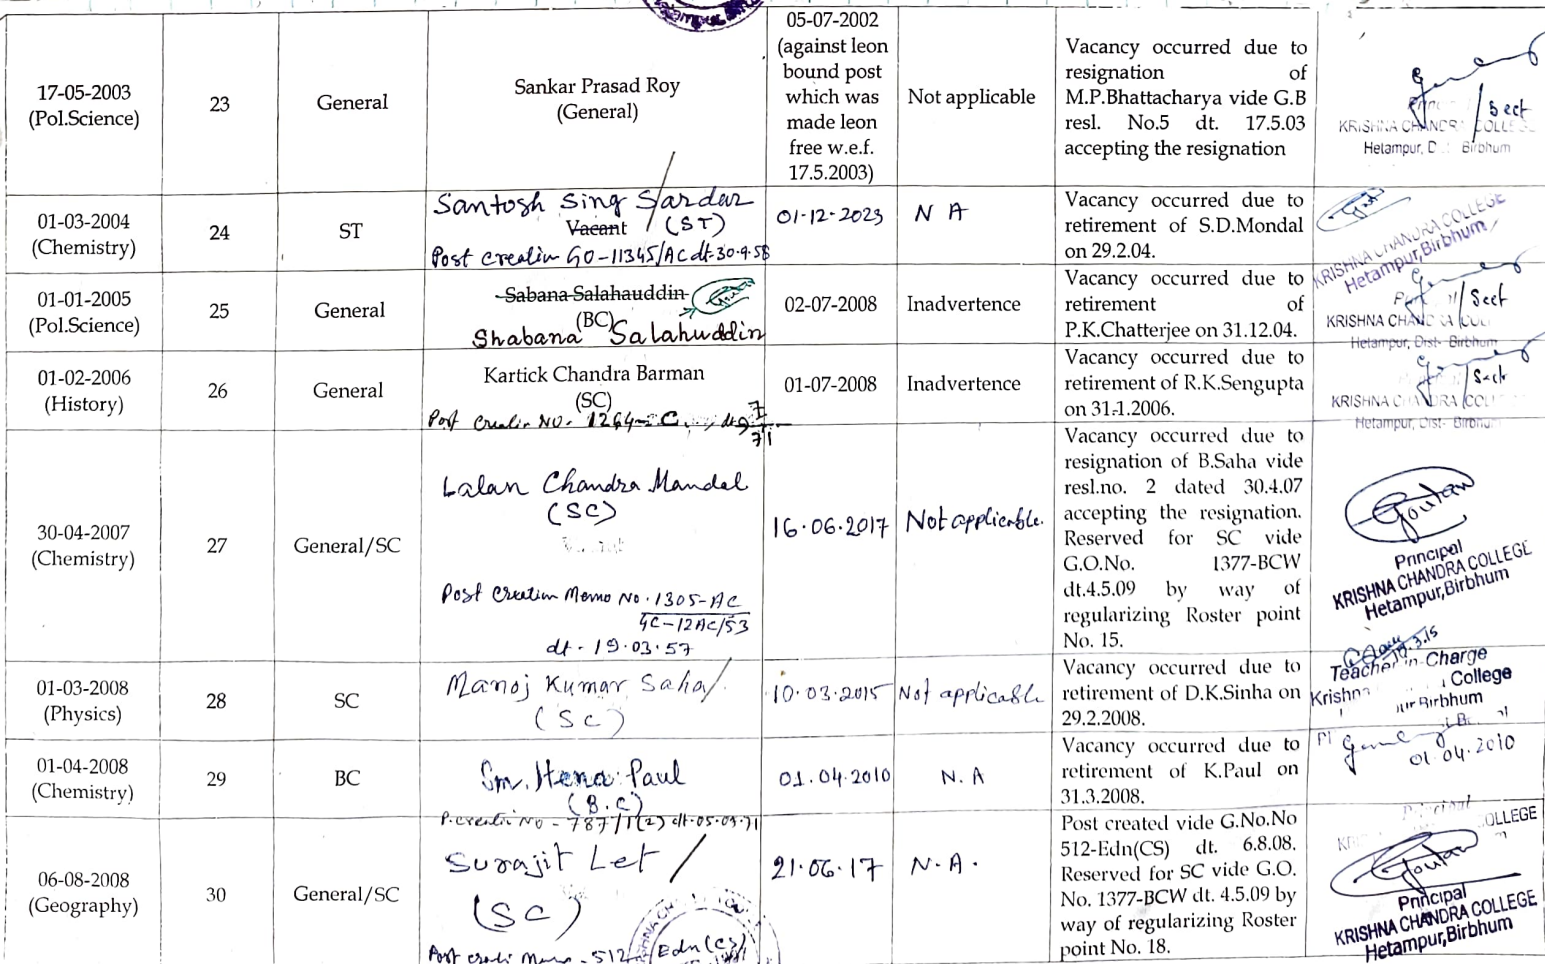 17-05-2003
(Pol.Science)
23
General
Sankar Prasad Roy
(General)
05-07-2002
(against leon
bound post
which was
made leon
free w.e.f.
17.5.2003)
Not applicable
Vacancy occurred due to
resignation of
M.P.Bhattacharya vide G.B
resl. No.5 dt. 17.5.03
accepting the resignation
Sect
KRISHNA CHANDRA COLLEGE
Hetampur, Birbhum
01-03-2004
(Chemistry)
24
ST
Santosh Sing Sardar
Vacant (ST)
Post Creation GO-11345/AC dt-30.9.58
01-12-2023
N A
Vacancy occurred due to
retirement of S.D.Mondal
on 29.2.04.
KRISHNA CHANDRA COLLEGE
Hetampur, Birbhum
01-01-2005
(Pol.Science)
25
General
Sabana Salahauddin
(BC)
Shabana Salahuddin
02-07-2008
Inadvertence
Vacancy occurred due to
retirement of
P.K.Chatterjee on 31.12.04.
Sect
KRISHNA CHANDRA
Hetampur, Dist- Birbhum
01-02-2006
(History)
26
General
Kartick Chandra Barman
(SC)
Post Creatin NO. 1264
01-07-2008
Inadvertence
Vacancy occurred due to
retirement of R.K.Sengupta
on 31-1.2006.
Sect
KRISHNA CHANDRA
Hetampur, Dist- Birbhum
30-04-2007
(Chemistry)
27
General/SC
Lalan Chandra Mandal
(SC)
Post Creation Memo No. 1305-AC
4C-12AC/53
dt - 19.03.57
16.06.2017
Not applicable.
Vacancy occurred due to
resignation of B.Saha vide
resl.no. 2 dated 30.4.07
accepting the resignation.
Reserved for SC vide
G.O.No. 1377-BCW
dt.4.5.09 by way of
regularizing Roster point
No. 15.
Goutam
Principal
KRISHNA CHANDRA COLLEGE
Hetampur,Birbhum
01-03-2008
(Physics)
28
SC
Manoj Kumar Saha
(SC)
10.03.2015
Not applicable
Vacancy occurred due to
retirement of D.K.Sinha on
29.2.2008.
Teacher-in-Charge
College
Birbhum
01-04-2008
(Chemistry)
29
BC
Sm. Hena Paul
(B.C)
P.creatin NO - 787/1(2) dt-05.03.71
01.04.2010
N.A
Vacancy occurred due to
retirement of K.Paul on
31.3.2008.
01.04.2010
Principal
COLLEGE
06-08-2008
(Geography)
30
General/SC
Surajit Let
(SC)
512 Edn(CS)
21.06.17
N.A.
Post created vide G.No.No
512-Edn(CS) dt. 6.8.08.
Reserved for SC vide G.O.
No. 1377-BCW dt. 4.5.09 by
way of regularizing Roster
point No. 18.
Goutam
Principal
KRISHNA CHANDRA COLLEGE
Hetampur,Birbhum